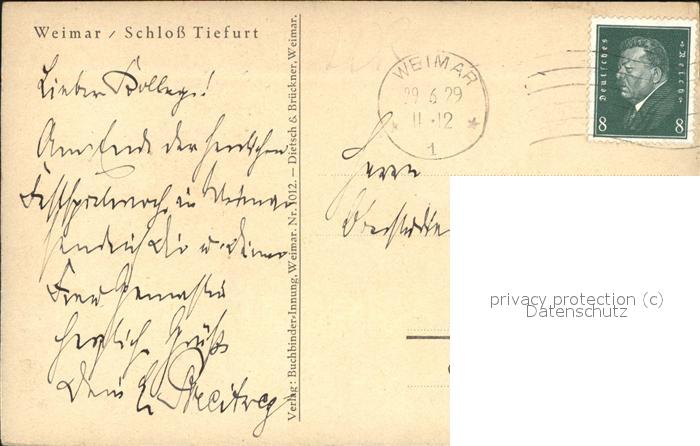 Weimar / Schloß Tiefurt
Lieber Kollege!
Am Ende der herrlichen
Festspielwoche in Weimar
sende ich Dir u. Deiner
Frau Gemahlin
herzliche Grüße
Dein
Verlag: Buchbinder-Innung, Weimar. Nr. 1012. — Dietsch & Brückner, Weimar.
WEIMAR
29 6 29
11-12
1
Deutsches Reich
8 8
Herrn
privacy protection (c)
Datenschutz